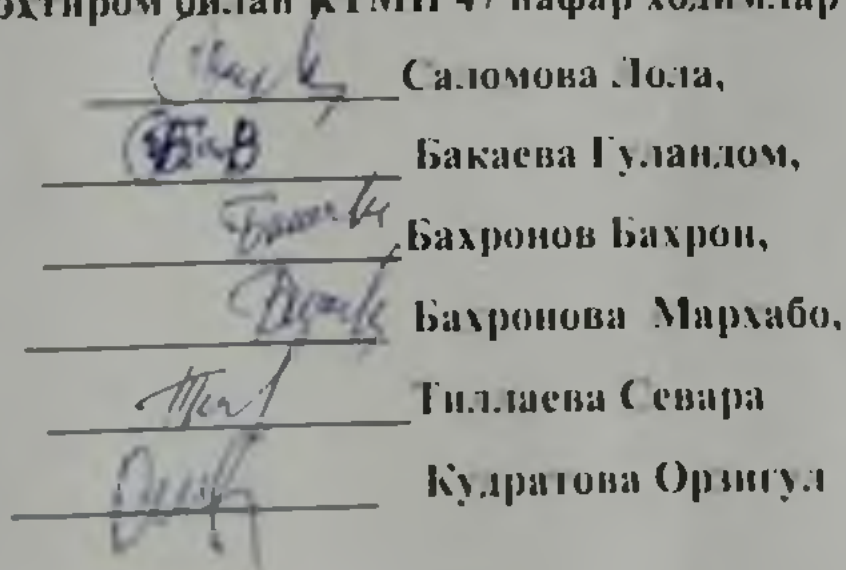 билан КТМП 47 нафар ходимлар
Саломова Лола,
Бакаева Гуландом,
Бахронов Бахрон,
Бахронова Мархабо,
Тиллаева Севара
Кудратова Орзигул